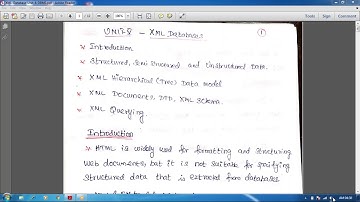 UNIT-8 - XML Databases
①
* Introduction
* Structured, Semi Structured and Unstructured Data.
* XML Hierarchical (Tree) Data model
* XML Documents, DTD, XML Schema.
* XML Querying.
Introduction
* HTML is widely used for formatting and structuring
Web documents, but it is not suitable for specifying
structured data that is extracted from databases.